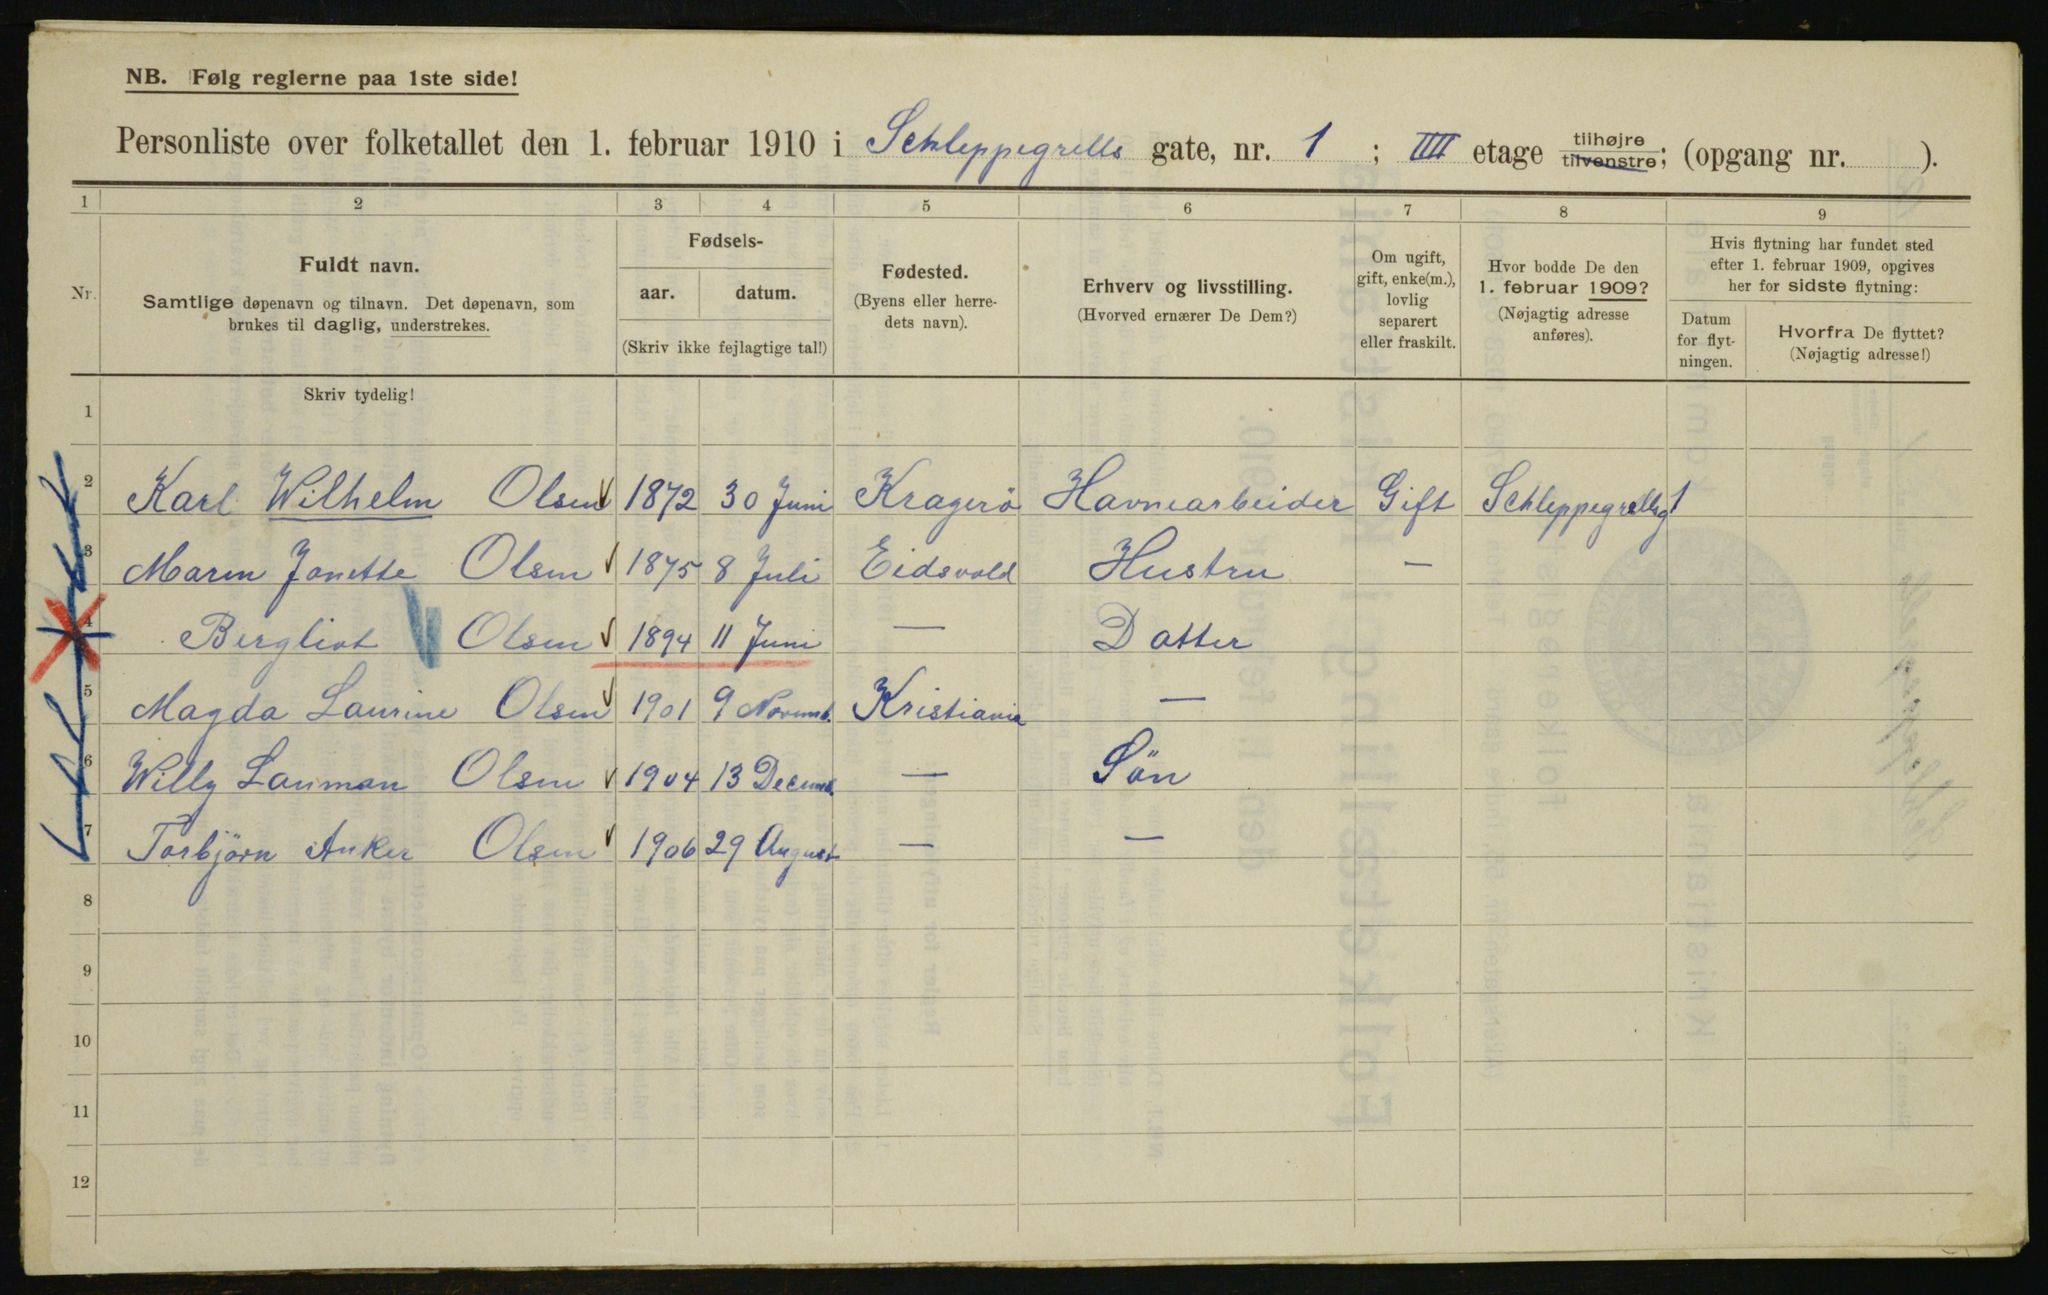 NB. Følg reglerne paa 1ste side!
Personliste over folketallet den 1. februar 1910 i Schleppegrells gate, nr. 1 ; IIII etage tilhøjre tilvenstre; (opgang nr. ).
1 2 3 4 5 6 7 8 9
Nr.
Fuldt navn.
Samtlige døpenavn og tilnavn. Det døpenavn, som
brukes til daglig, understrekes.
Fødsels-
aar. datum.
(Skriv ikke fejlagtige tal!)
Fødested.
(Byens eller herre-
dets navn).
Erhverv og livsstilling.
(Hvorved ernærer De Dem?)
Om ugift,
gift, enke(m.),
lovlig
separert
eller fraskilt.
Hvor bodde De den
1. februar 1909?
(Nøjagtig adresse
anføres).
Hvis flytning har fundet sted
efter 1. februar 1909, opgives
her for sidste flytning:
Datum
for flyt-
ningen.
Hvorfra De flyttet?
(Nøjagtig adresse!)
Skriv tydelig!
1
2 Karl Wilhelm Olsen 1872 30 Juni Kragerö Havnearbeider Gift Schleppegrellsg 1
3 Maren Janette Olsen 1875 8 Juli Eidsvold Hustru —
4 Bergliot Olsen 1894 11 Juni — Datter
5 Magda Laurine Olsen 1901 9 Novemb. Kristiania —
6 Willy Lauman Olsen 1904 13 Decemb. — Sön
7 Torbjörn Anker Olsen 1906 29 August — —
8
9
10
11
12